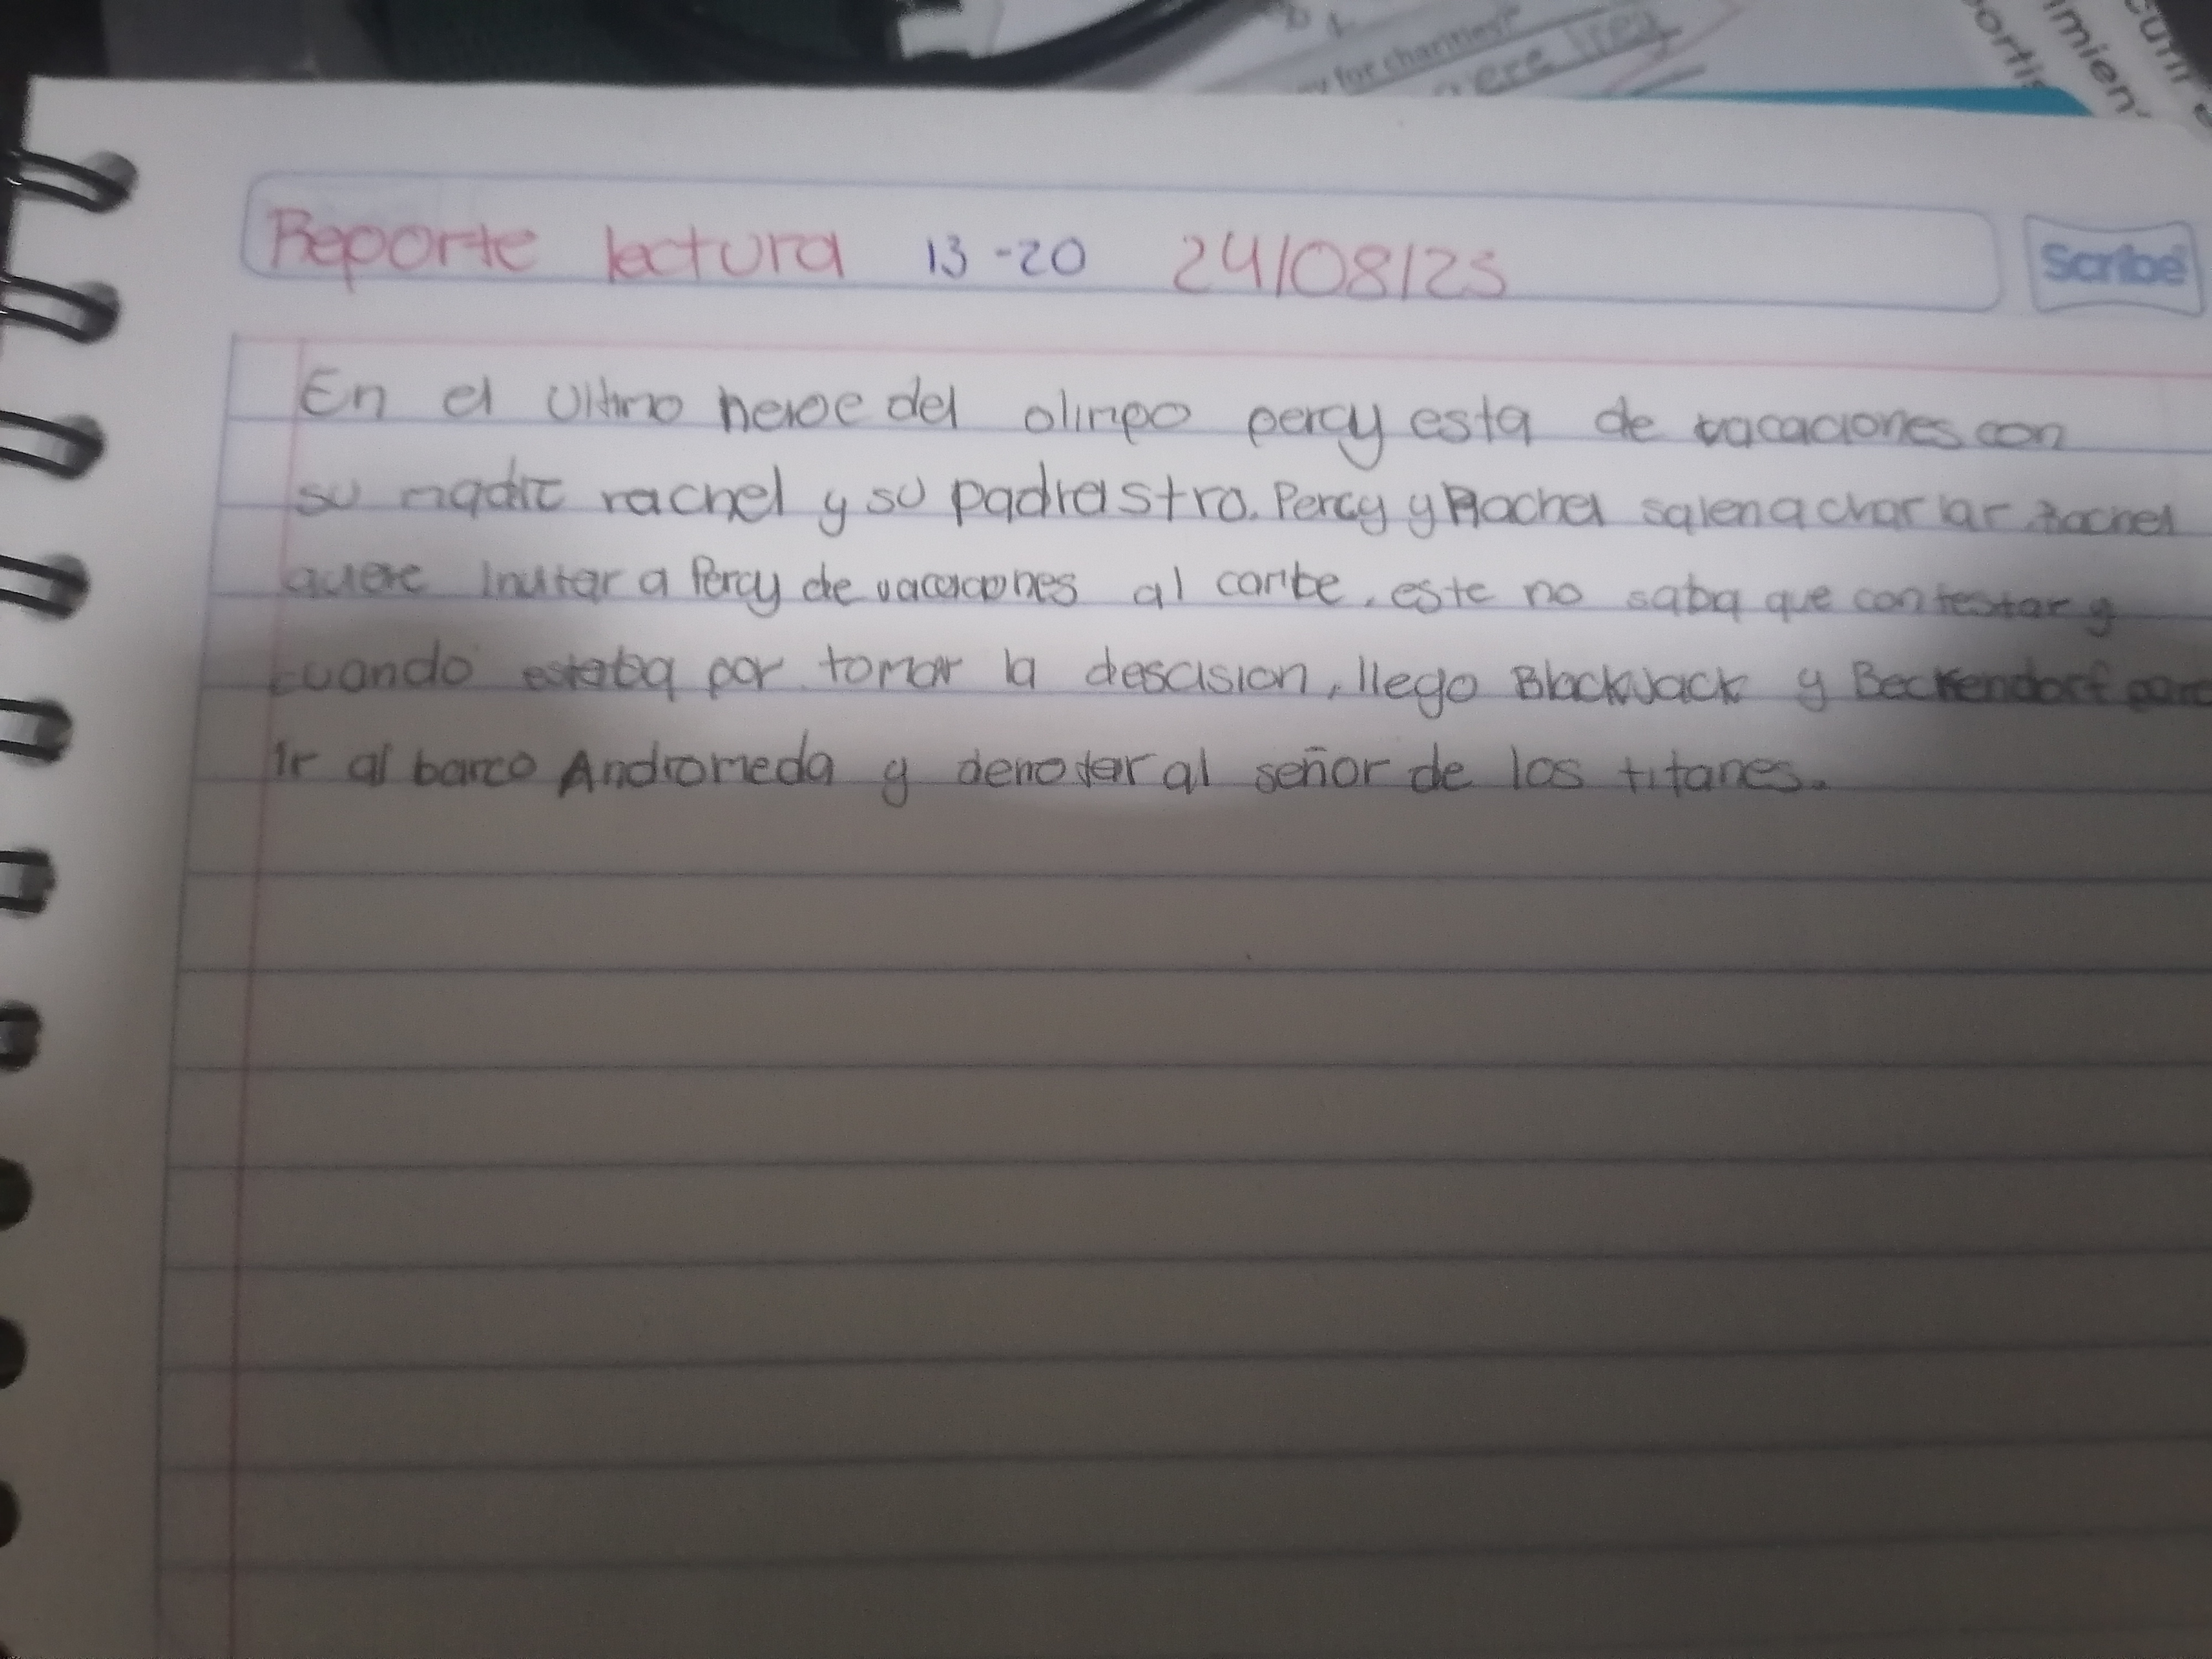 for charities?
ere
Reporte lectura 13-20 24/08/23
Scribe
En el Ultimo heroe del olimpo percy esta de vacaciones con
su madre rachel y su padrastro. Percy y Rachel salen a charlar rachel
quiere invitar a Percy de vacaciones al caribe, este no saba que contestar y
cuando estaba por tomar la descision, llego BlackJack y Beckendorf para
ir al barco Andromeda y derrotar al señor de los titanes.